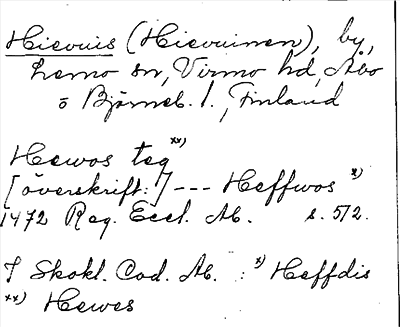 Hievuis (Hievuinen), by,
Lemo sn, Virmo hd, Åbo
o Björneb. l., Finland
Hewos teg xx)
[överskrift:] --- Heffwos x)
1472 Reg. Eccl. Ab. s. 572.
I Skokl. Cod. Ab. : x) Heffdis
xx) Hewes